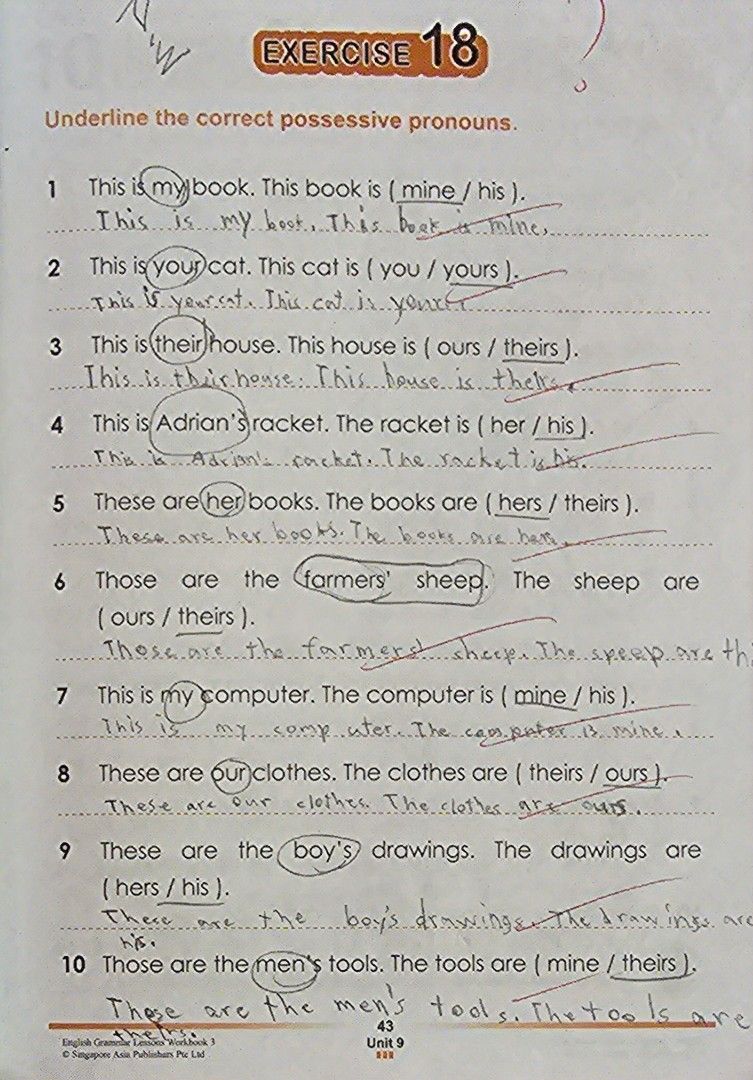 N
'W
EXERCISE 18
Underline the correct possessive pronouns.
1 This is my book. This book is ( mine / his ).
This is my book. This book is mine.
2 This is your cat. This cat is ( you / yours ).
This is your cat. This cat is
3 This is their house. This house is ( ours / theirs ).
This is their house. This house is theirs.
4 This is Adrian's racket. The racket is ( her / his ).
This is Adrian's racket. The racket is his.
5 These are her books. The books are ( hers / theirs ).
These are her books. The books are hers.
6 Those are the farmers' sheep. The sheep are
( ours / theirs ).
Those are the farmers' sheep. The speep are thi
7 This is my computer. The computer is ( mine / his ).
This is my comp uter. The computer is mine.
8 These are our clothes. The clothes are ( theirs / ours ).
These are our clothes. The clothes are ours.
9 These are the boy's drawings. The drawings are
( hers / his ).
These are the boy's drawings. The drawings are
his.
10 Those are the men's tools. The tools are ( mine / theirs ).
Those are the men's tools. The tools are
theirs.
43
English Grammar Lessons Workbook 3
Unit 9
© Singapore Asia Publishers Pte Ltd